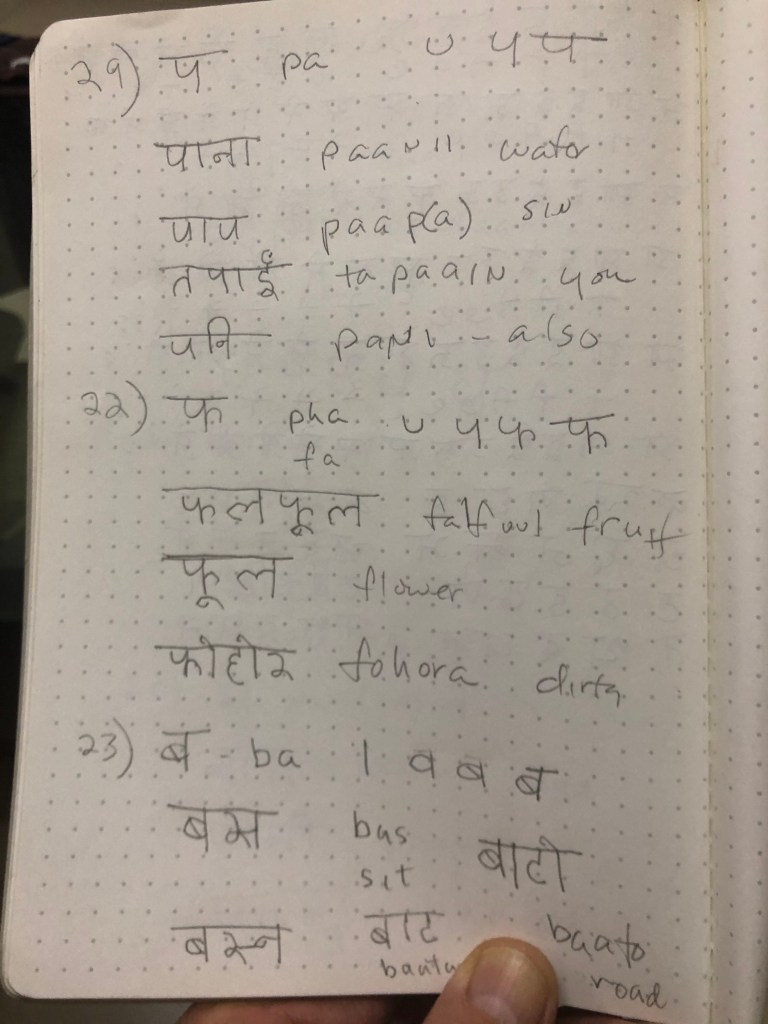 २१) प pa ‿ ५ प
पाना paanii water
पाप paap(a) sin
तपाईँ tapaain you
पनि pani - also
२२) फ pha ‿ ५ फ फ
fa
फलफूल falfuul fruit
फूल flower
फोहोर fohora dirty
२३) ब - ba । व ब ब
बस bus
sit बाटो
बस्न बाट baato
baata road